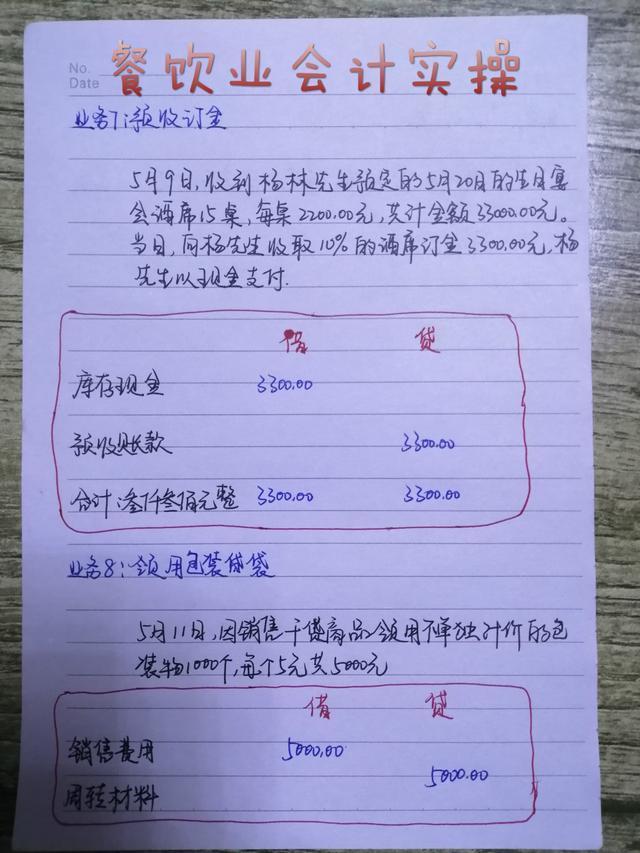 餐饮业会计实操
No.
Date
业务7:预收订金
5月9日,收到杨林先生预定的5月20日的生日宴
会酒席15桌,每桌2200.00元,共计金额33000.00元。
当日,向杨先生收取10%的酒席订金3300.00元,杨
先生以现金支付.
借 贷
库存现金 3300.00
预收账款 3300.00
合计:叁仟叁佰元整 3300.00 3300.00
业务8:领用包装袋
5月11日,因销售干货商品领用不单独计价的包
装物1000个,每个5元共5000元
借 贷
销售费用 5000.00
5000.00
周转材料